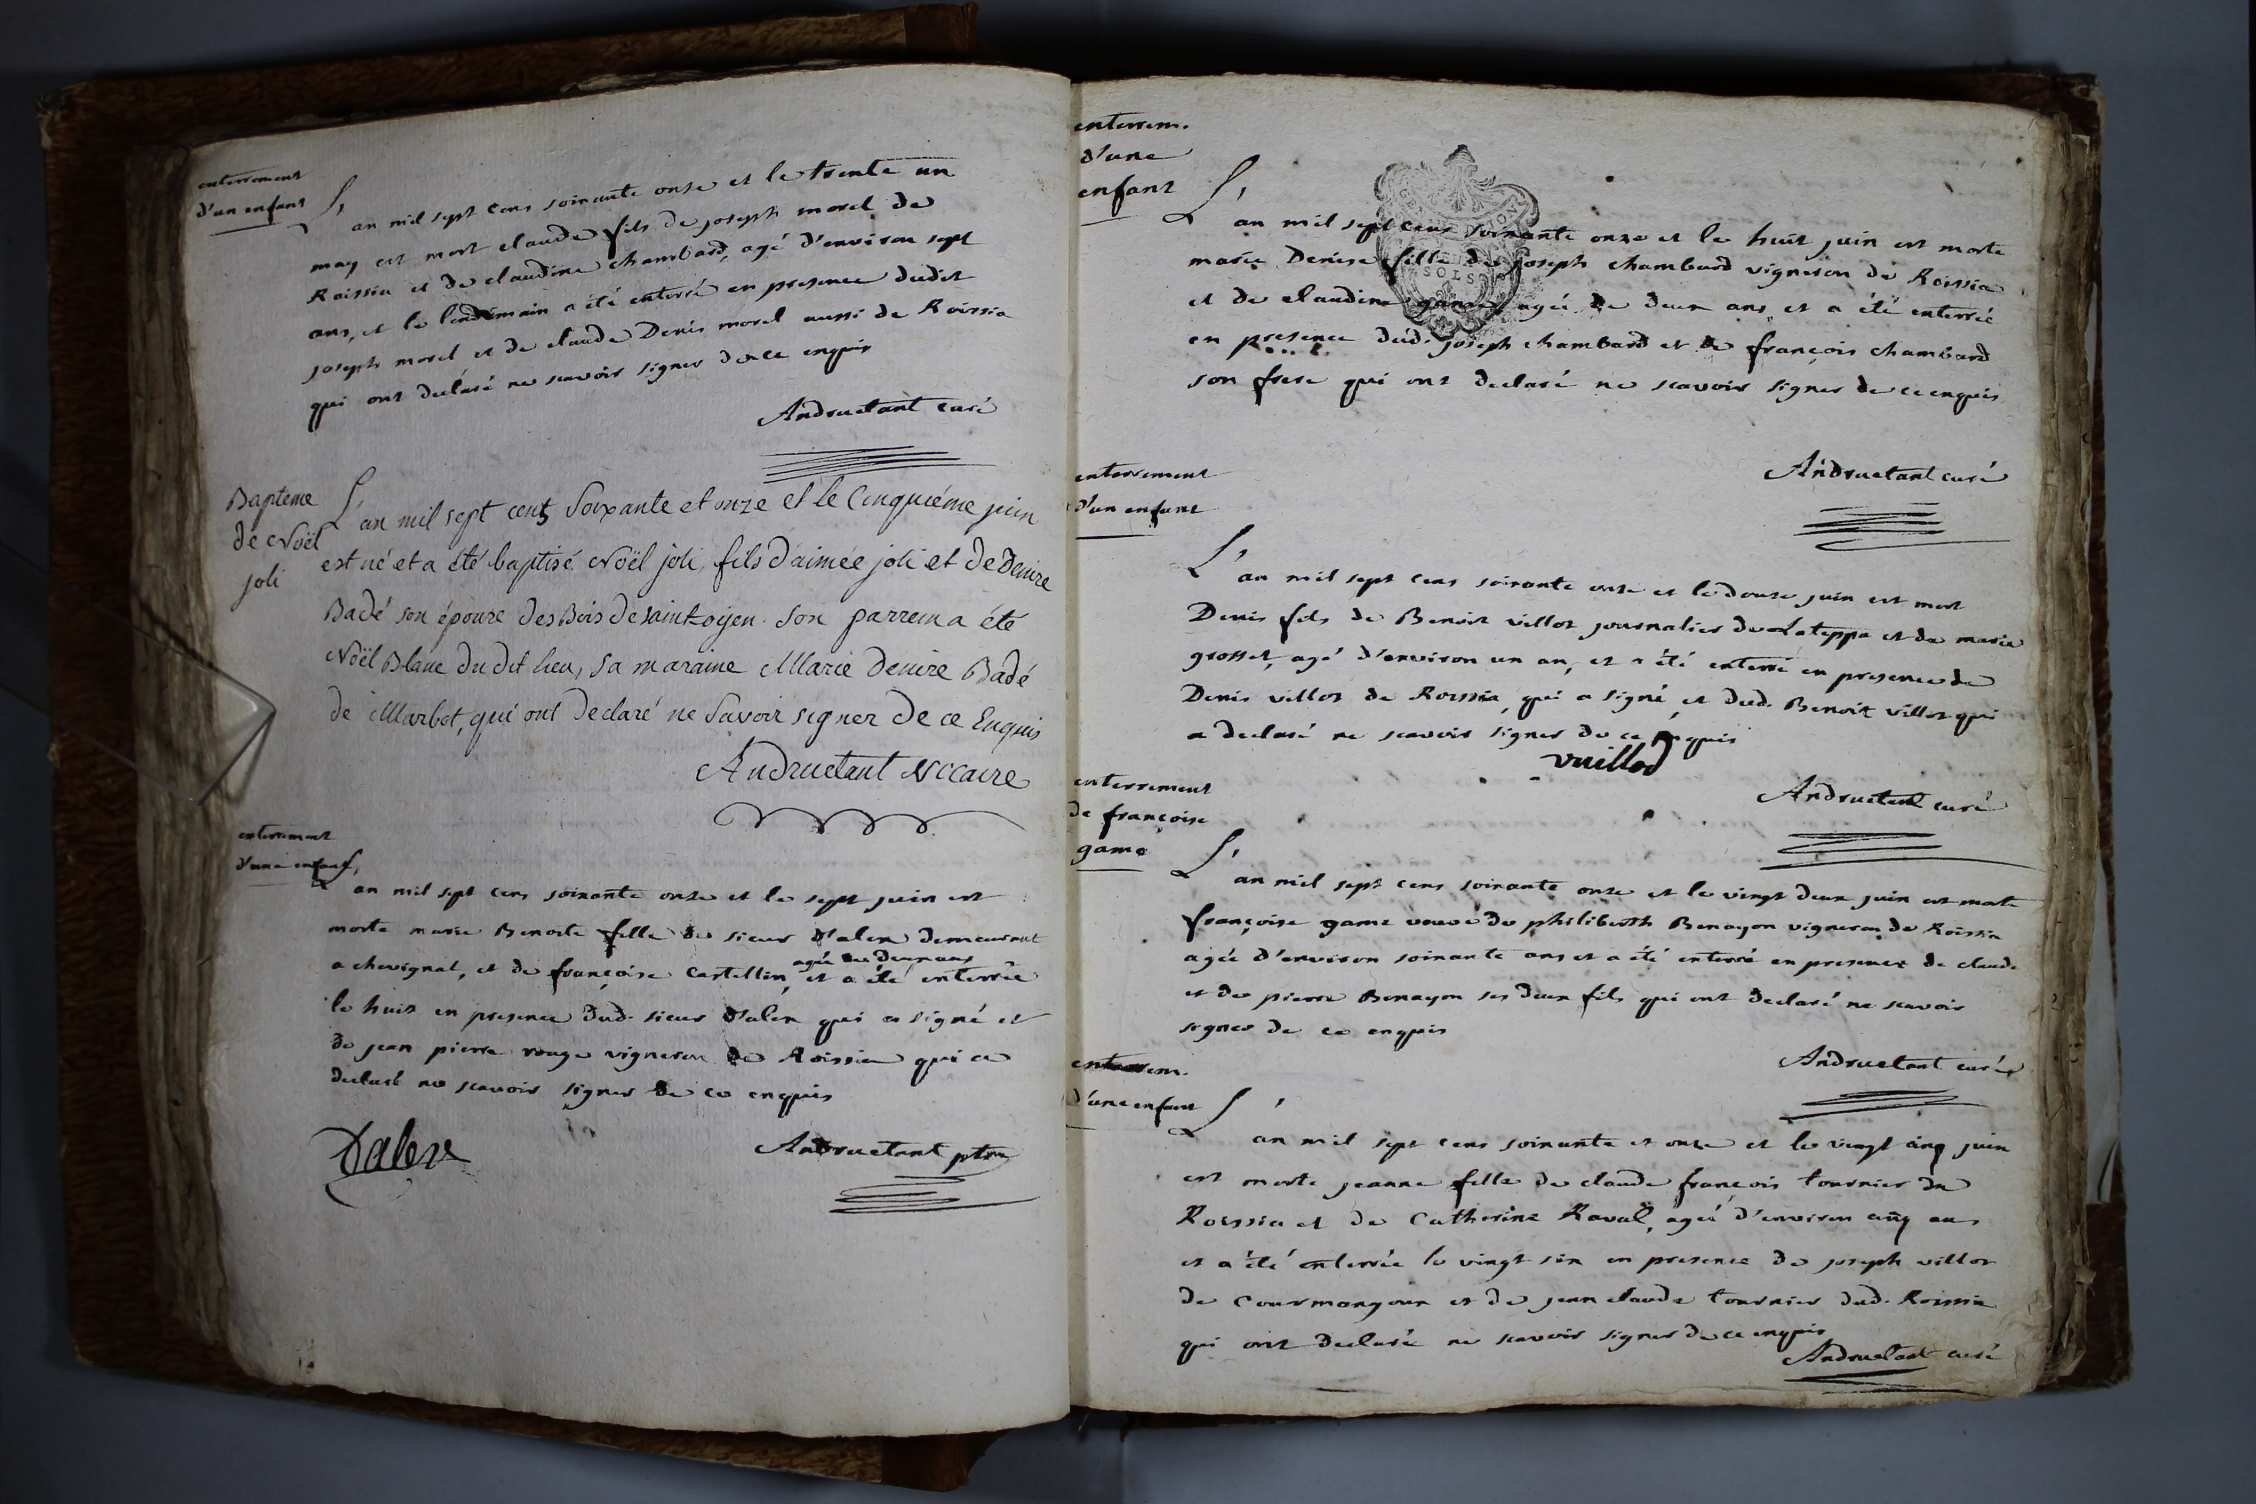 enterrement
d'un enfant
L'an mil sept cens soixante onze et le trente un
may est mort claude fils de joseph morel de
Roissia et de claudine chambard, agé d'environ sept
ans, et le lendemain a été enterré en presence dudit
joseph morel et de claude Denis morel aussi de Roissia
qui ont declaré ne scavoir signer de ce enquis
Andruetant curé
Bapteme
de Noël
joli
L'an mil sept cents soixante et onze et le Cinquiéme juin
est né et a été baptisé Noël joli, fils d'aimée joli et de Denize
Badé son épouze des Bois de saint oyen. Son parrein a été
Noël Blanc du dit lieu, sa maraine Marie Denize Badé
de Marbot, qui ont Declaré ne Savoir signer De ce Enquis
Andruetant Viccaire
enterrement
d'une enfant
L'an mil sept cens soixante onze et le sept juin est
morte marie Benoite fille de sieur D'alex demeurant
a chevignat, et de françoise Castellin, agée de deux ans et a été enterrée
le huit en presence dud. sieur D'alex qui a signé et
de jean pierre rouge vigneron de Roissia qui a
declaré ne scavoir signer de ce enquis
Dalex
Andruetant ptre
enterrem.
d'une
enfant
L'an mil sept cens soixante onze et le huit juin est morte
marie Denise fille de joseph chambard vigneron de Roissia
SOLS
et de claudine game agée de deux ans, et a été enterrée
en presence dud. joseph chambard et de françois chambard
son frere qui ont declaré ne scavoir signer de ce enquis
Andruetant curé
enterrement
d'un enfant
L'an mil sept cens soixante onze et le douze juin est mort
Denis fils de Benoit villot journalier de Lateppe et de marie
grosset, agé d'environ un an, et a été enterré en presence de
Denis villot de Roissia, qui a signé, et dud. Benoit villot qui
a declaré ne scavoir signer de ce enquis
vuillod
Andruetant curé
enterrement
de françoise
game
L'an mil sept cens soixante onze et le vingt deux juin est morte
françoise game veuve de philiberth Benayon vigneron de Roissia
agée d'environ soixante ans et a été enterré en presence de claude
et de pierre Benayon ses deux fils qui ont declaré ne scavoir
signer de ce enquis
Andruetant curé
enterrem.
d'une enfant
L'an mil sept cens soixante et onze et le vingt cinq juin
est morte jeanne fille de claude françois tournier de
Roissia et de Catherine Raval, agée d'environ cinq ans
et a été enterrée le vingt six en presence de joseph villot
de Courmangoux et de jean claude tournier dud. Roissia
qui ont declaré ne scavoir signer de ce enquis
Andruetant curé